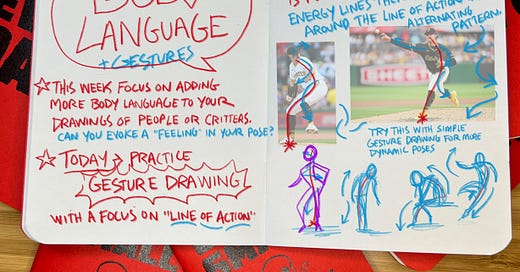 BODY
LANGUAGE
+/GESTURES
☆ THIS WEEK FOCUS ON ADDING
MORE BODY LANGUAGE TO YOUR
DRAWINGS OF PEOPLE OR CRITTERS.
CAN YOU EVOKE A "FEELING" IN YOUR POSE?
☆ TODAY → PRACTICE
GESTURE DRAWING
WITH A FOCUS ON "LINE OF ACTION"
ENERGY LINES
AROUND THE LINE OF ACTION
ALTERNATING
PATTERN.
TRY THIS WITH SIMPLE
GESTURE DRAWING FOR MORE
DYNAMIC POSES